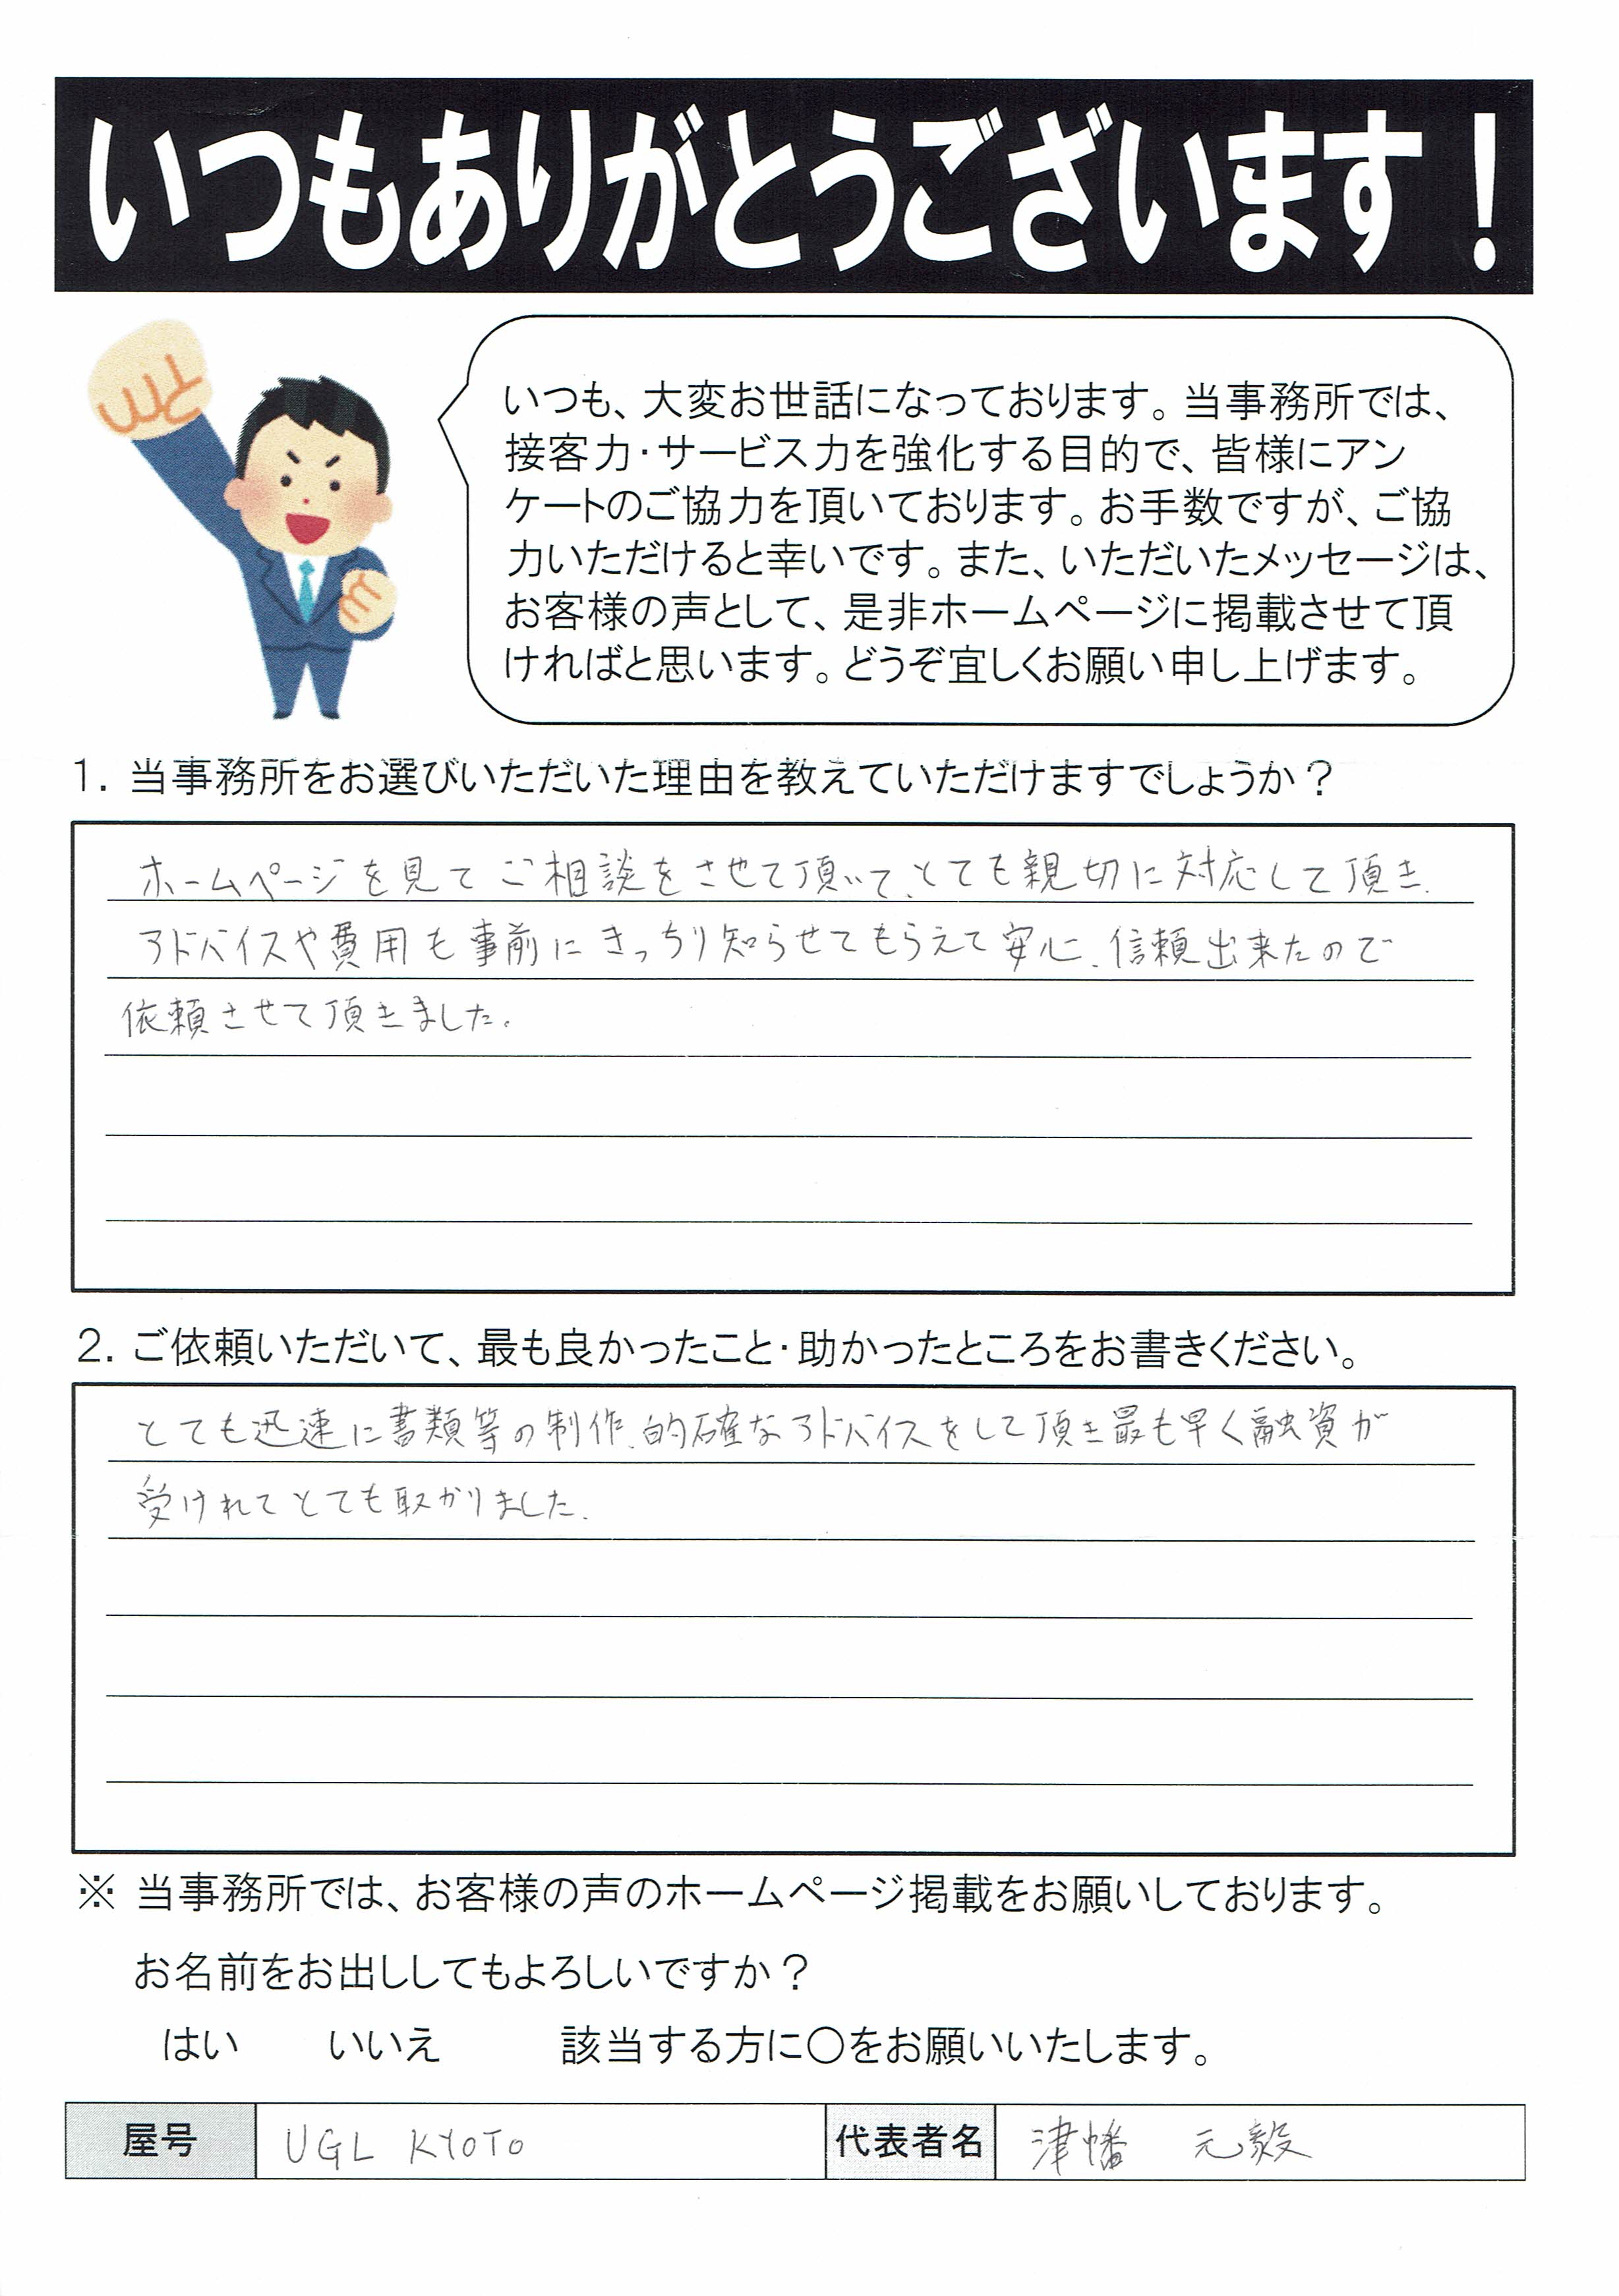 いつもありがとうございます！
いつも、大変お世話になっております。当事務所では、
接客力・サービス力を強化する目的で、皆様にアン
ケートのご協力を頂いております。お手数ですが、ご協
力いただけると幸いです。また、いただいたメッセージは、
お客様の声として、是非ホームページに掲載させて頂
ければと思います。どうぞ宜しくお願い申し上げます。
1. 当事務所をお選びいただいた理由を教えていただけますでしょうか？
ホームページを見てご相談をさせて頂いて、とても親切に対応して頂き、
アドバイスや費用も事前にきっちり知らせてもらえて安心、信頼出来たので
依頼させて頂きました。
2. ご依頼いただいて、最も良かったこと・助かったところをお書きください。
とても迅速に書類等の制作、的確なアドバイスをして頂き最も早く融資が
受けれてとても取かりました。
※ 当事務所では、お客様の声のホームページ掲載をお願いしております。
お名前をお出ししてもよろしいですか？
はい いいえ 該当する方に〇をお願いいたします。
屋号 UGL KYOTO 代表者名 津幡 元毅